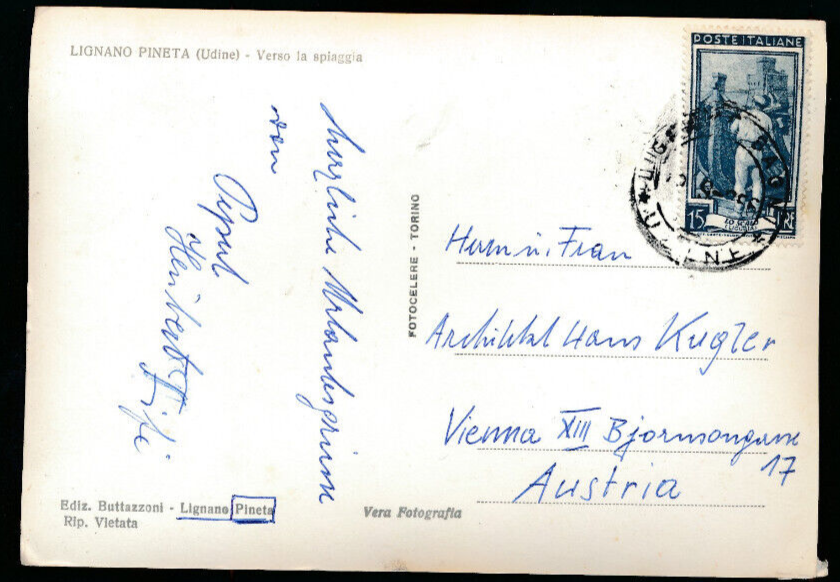 LIGNANO PINETA (Udine) - Verso la spiaggia
herzliche Urlaubsgrüsse
von
Heribert
FOTOCELERE - TORINO
POSTE ITALIANE
15 LIRE
Herrn u. Frau
Architekt Hans Kugler
Vienna XIII Bjornsongasse
17
Austria
Ediz. Buttazzoni - Lignano Pineta
Rip. Vietata
Vera Fotografia